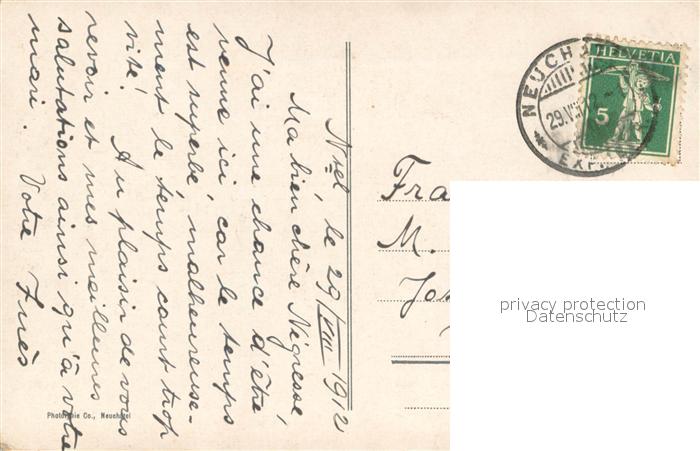 Ntel, le 29/VIII 1912
Ma bien chère Négresse,
J'ai une chance d'être
venue ici car le temps
est superbe, malheureuse-
ment le temps court trop
vite! Au plaisir de vous
revoir et mes meilleures
salutations ainsi qu'à votre
mari. Votre
Phototypie Co., Neuchâtel
NEUCH
29.VIII
EXP.
HELVETIA
5
Fra
M.
Jos
privacy protection
Datenschutz